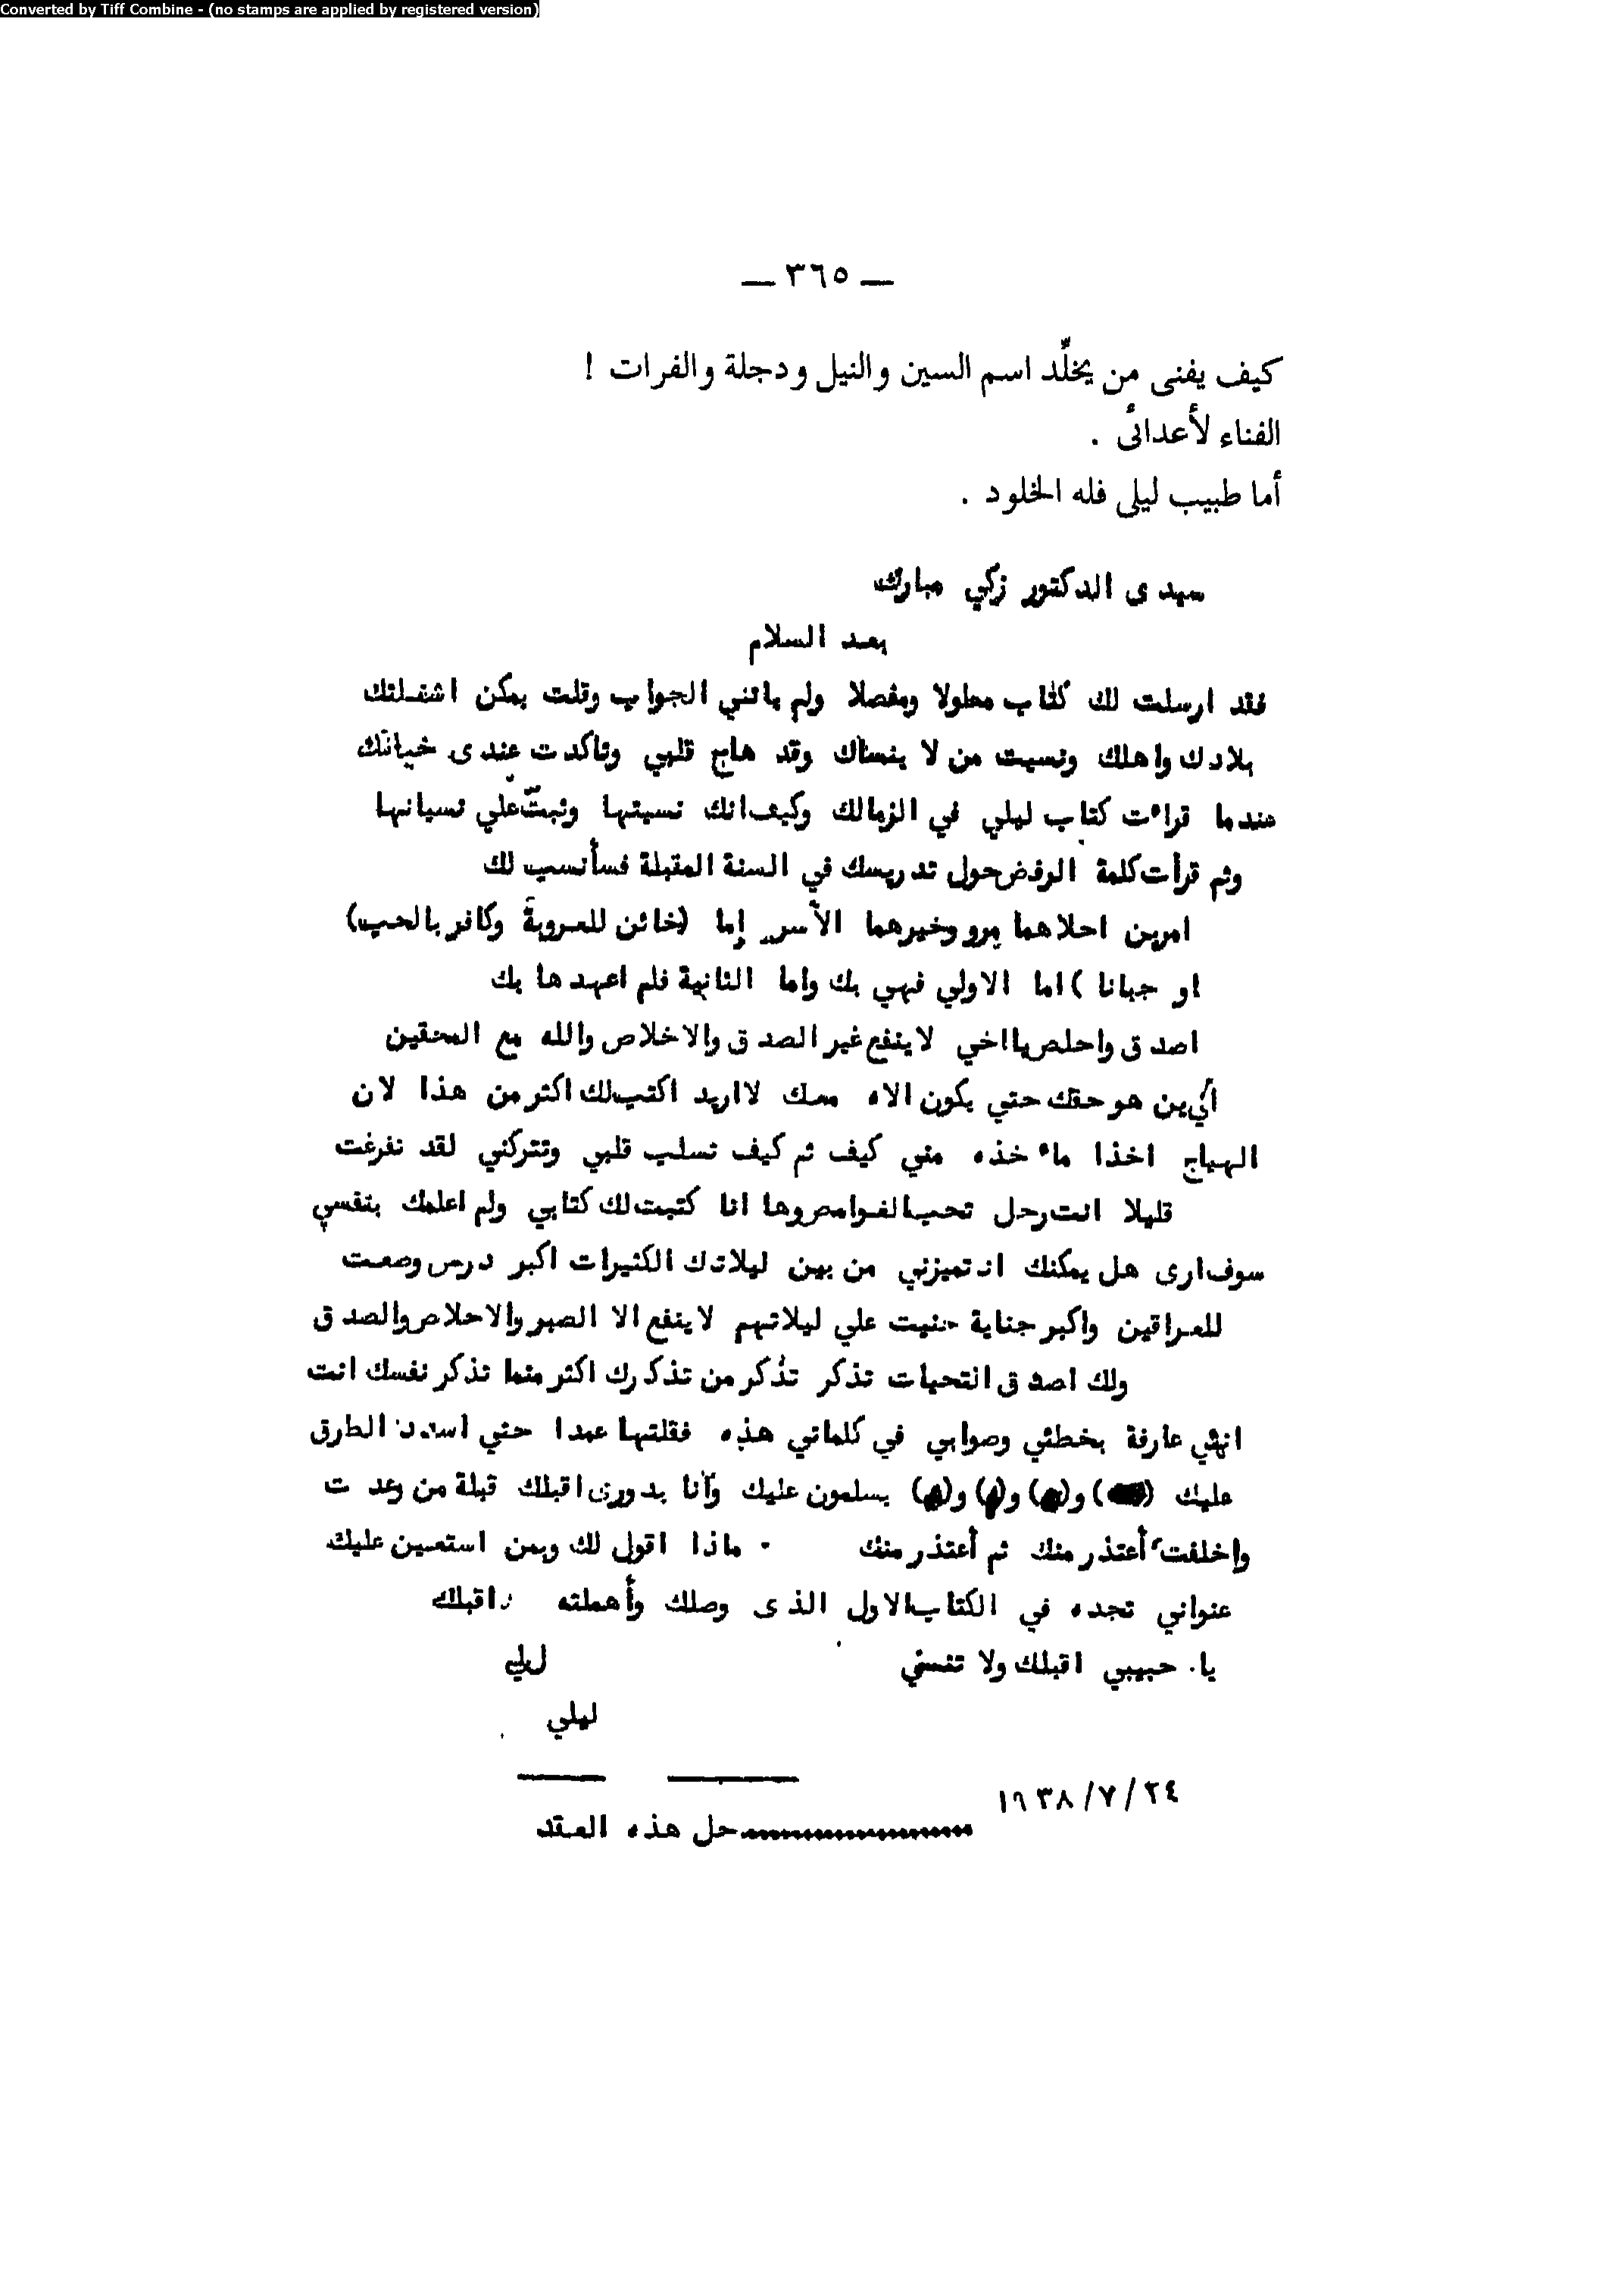 Converted by Tiff Combine - (no stamps are applied by registered version)
— ٣٦٥ —
كيف يفنى من يخلِّد اسم السين والنيل ودجلة والفرات !
الفناء لأعدائى .
أما طبيب ليلى فله الخلود .
سيدى الدكتور زكي مبارك
بعد السلام
فقد ارسلت لك كتاب مطولا ومفصلا ولم ياتني الجواب وقلت يمكن اشغلتك
بلادك واهلك ونسيت من لا ينساك وقد هاج قلبي وتاكدت عندى خيانتك
عندما قراءت كتاب ليلي في الزمالك وكيف انك نسيتها ونبت علي نسيانها
وثم قرأت كلمة الرفض حول تدريسك في السنة المقبلة فسأنسب لك
امرين احلاهما مرو وخيرهما الأسر إما (خائن للعروبة وكافر بالحب)
او جبانا ) اما الاولي فهي بك واما الثانية فلم اعهدها بك
اصدق واخلص يا اخي لاينفع غير الصدق والاخلاص والله مع المحقين
أي ين هو حقك حتي يكون الاه معك لا اريد اكتب لك اكثر من هذا لان
الهياج اخذا ماء خذه مني كيف ثم كيف تسلب قلبي وتتركني لقد تفرغت
قليلا انت رجل تحب الغوامص وها انا كتبت لك كتابي ولم اعلمك بنفسي
سوف ارى هل يمكنك ان تميزني من بين ليلاتك الكثيرات اكبر درس وصعت
للعراقين واكبر جناية جنيت علي ليلاتهم لاينفع الا الصبر والاخلاص والصدق
ولك اصدق التحيات تذكر تذكر من تذكرك اكثر مما تذكر نفسك انت
انني عارفة بخطئي وصوابي في كلماتي هذه فقلتها عمدا حتي اسدد الطرق
عليك ( ) و( ) و( ) و( ) يسلمون عليك وأنا بدورى اقبلك قبلة من وعدت
واخلفت أعتذر منك ثم أعتذر منك . ماذا اقول لك وبمن استعين عليك
عنواني تجده في الكتاب الاول الذى وصلك وأهملته اقبلك
يا. حبيبي اقبلك ولا تنسني ليلي
ليلي
٢٤/٧/١٩٣٨
حل هذه العقد